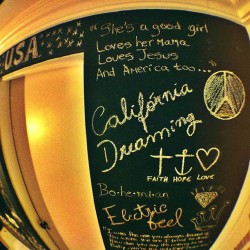 USA
"She's a good girl
Loves her Mama
Loves Jesus
And America too..."
Califórnia
Dreaming
FAITH HOPE LOVE
Bohemian
Electric
feel